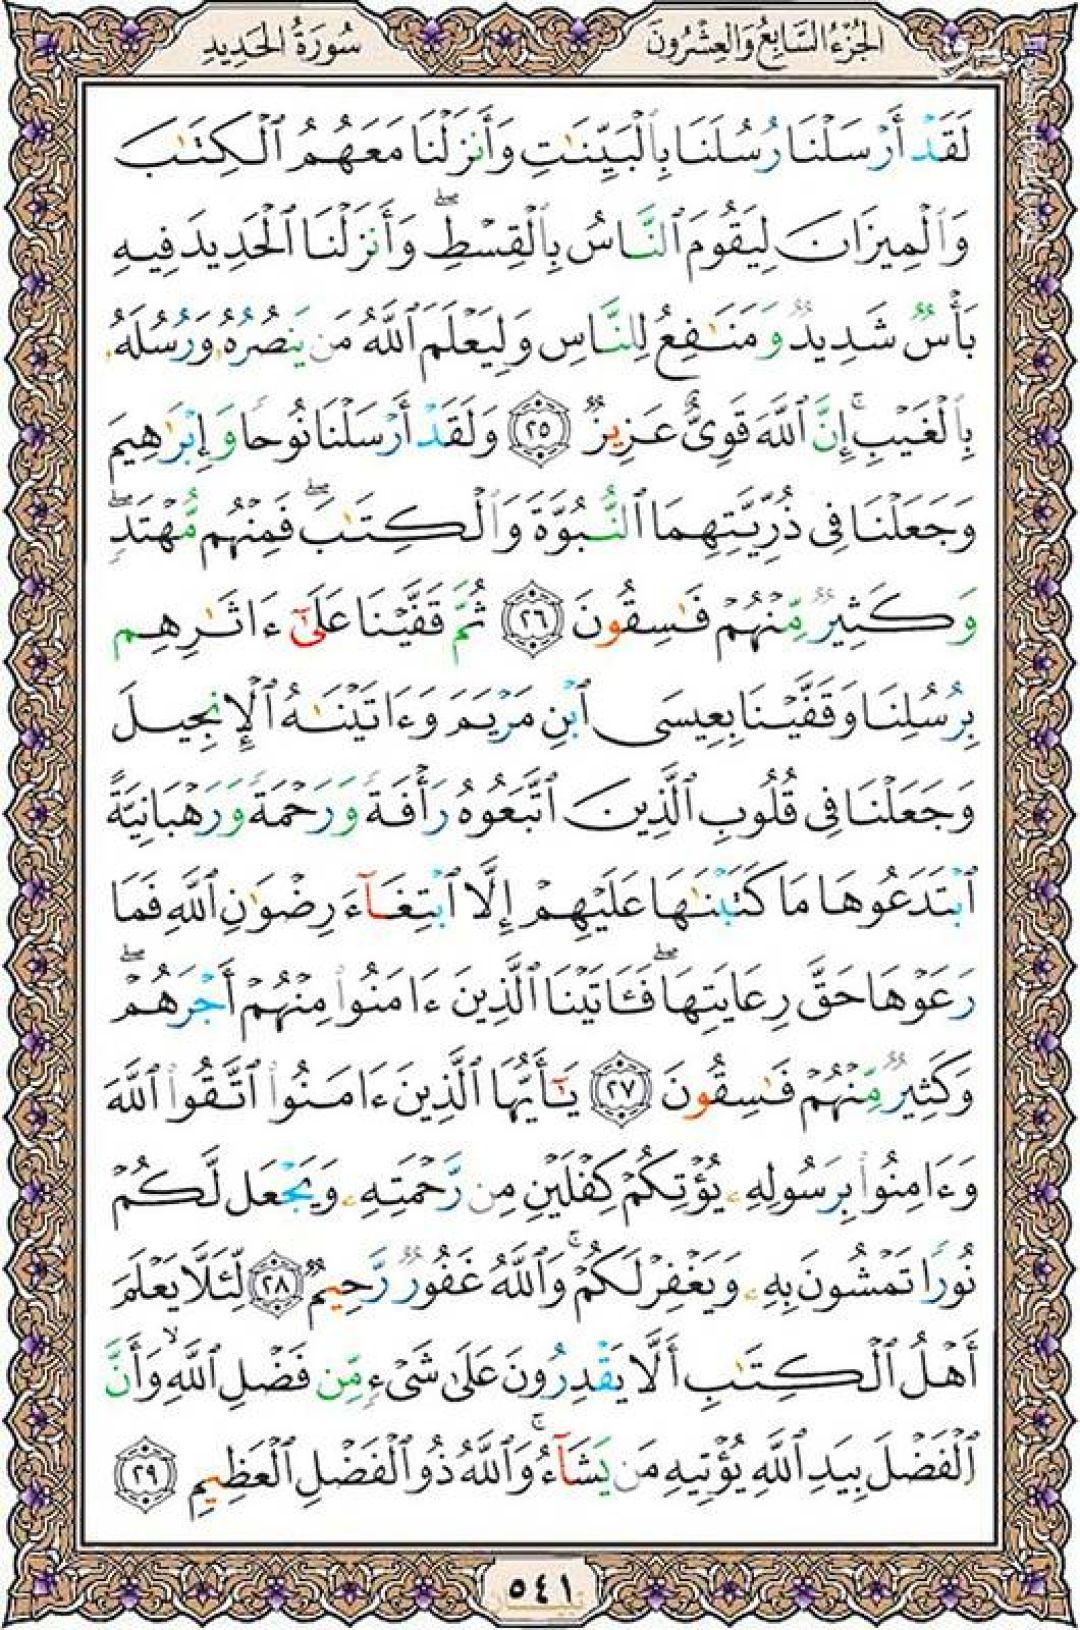 الجُزْءُ السَّابِعُ وَالعِشْرُونَ
سُورَةُ الحَدِيدِ
لَقَدْ أَرْسَلْنَا رُسُلَنَا بِٱلْبَيِّنَٰتِ وَأَنزَلْنَا مَعَهُمُ ٱلْكِتَٰبَ
وَٱلْمِيزَانَ لِيَقُومَ ٱلنَّاسُ بِٱلْقِسْطِۖ وَأَنزَلْنَا ٱلْحَدِيدَ فِيهِ
بَأْسٌ شَدِيدٌ وَمَنَٰفِعُ لِلنَّاسِ وَلِيَعْلَمَ ٱللَّهُ مَن يَنصُرُهُۥ وَرُسُلَهُۥ
بِٱلْغَيْبِۚ إِنَّ ٱللَّهَ قَوِىٌّ عَزِيزٌ ٢٥ وَلَقَدْ أَرْسَلْنَا نُوحًا وَإِبْرَٰهِيمَ
وَجَعَلْنَا فِى ذُرِّيَّتِهِمَا ٱلنُّبُوَّةَ وَٱلْكِتَٰبَۖ فَمِنْهُم مُّهْتَدٍۖ
وَكَثِيرٌ مِّنْهُمْ فَٰسِقُونَ ٢٦ ثُمَّ قَفَّيْنَا عَلَىٰٓ ءَاثَٰرِهِم
بِرُسُلِنَا وَقَفَّيْنَا بِعِيسَى ٱبْنِ مَرْيَمَ وَءَاتَيْنَٰهُ ٱلْإِنجِيلَ
وَجَعَلْنَا فِى قُلُوبِ ٱلَّذِينَ ٱتَّبَعُوهُ رَأْفَةً وَرَحْمَةً وَرَهْبَانِيَّةً
ٱبْتَدَعُوهَا مَا كَتَبْنَٰهَا عَلَيْهِمْ إِلَّا ٱبْتِغَآءَ رِضْوَٰنِ ٱللَّهِ فَمَا
رَعَوْهَا حَقَّ رِعَايَتِهَاۖ فَـَٔاتَيْنَا ٱلَّذِينَ ءَامَنُوا۟ مِنْهُمْ أَجْرَهُمْۖ
وَكَثِيرٌ مِّنْهُمْ فَٰسِقُونَ ٢٧ يَٰٓأَيُّهَا ٱلَّذِينَ ءَامَنُوا۟ ٱتَّقُوا۟ ٱللَّهَ
وَءَامِنُوا۟ بِرَسُولِهِۦ يُؤْتِكُمْ كِفْلَيْنِ مِن رَّحْمَتِهِۦ وَيَجْعَل لَّكُمْ
نُورًا تَمْشُونَ بِهِۦ وَيَغْفِرْ لَكُمْۚ وَٱللَّهُ غَفُورٌ رَّحِيمٌ ٢٨ لِّئَلَّا يَعْلَمَ
أَهْلُ ٱلْكِتَٰبِ أَلَّا يَقْدِرُونَ عَلَىٰ شَىْءٍ مِّن فَضْلِ ٱللَّهِۙ وَأَنَّ
ٱلْفَضْلَ بِيَدِ ٱللَّهِ يُؤْتِيهِ مَن يَشَآءُۚ وَٱللَّهُ ذُو ٱلْفَضْلِ ٱلْعَظِيمِ ٢٩
٥٤١